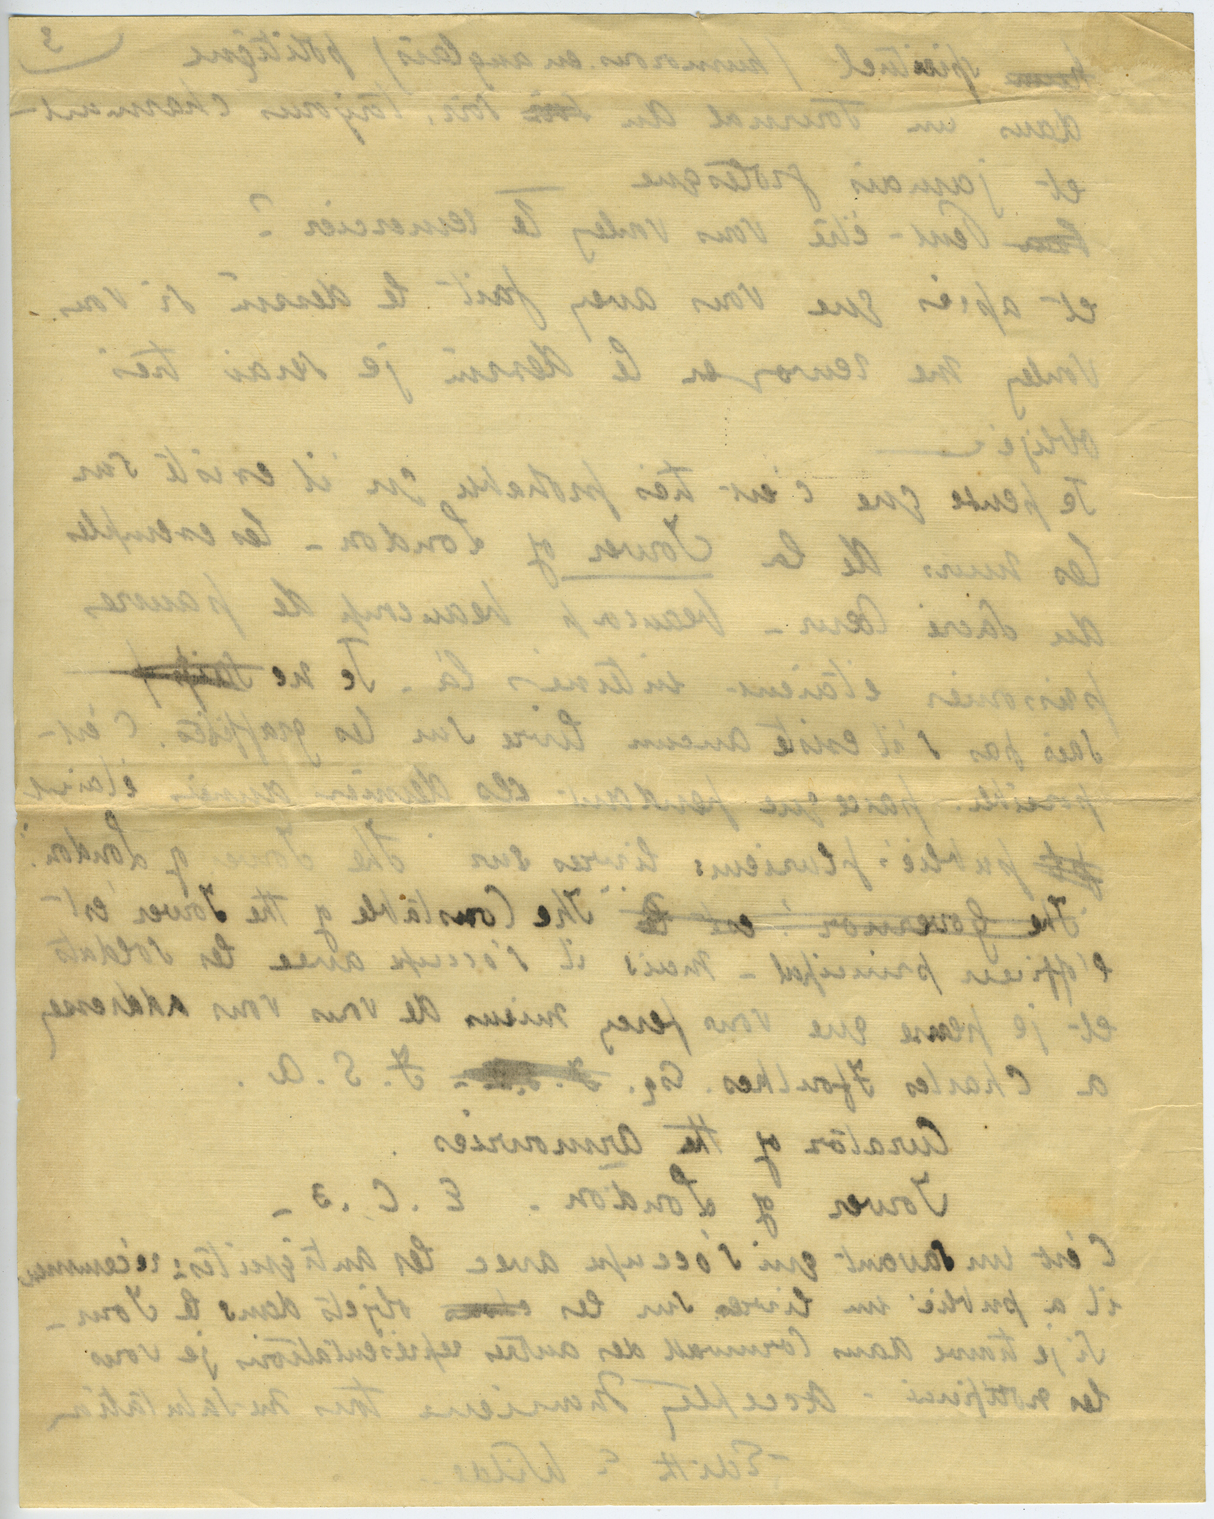 3
~~hum~~ spirituel (humorous en anglais) politique
dans un Journal du ~~soi~~ soir, toujours charmant -
et jamais grotesque
~~bea~~ Peut-être vous voulez le remercier?
et après que vous avez fait le dessin si vous
voulez me renvoyer le dessin je serai très
obligée
Je pense que c'est très probable qu'il existe sur
les murs de la Tower of London - les exemples
du Sacré Cœur - beaucoup beaucoup de pauvres
prisoniers etaient internés là. Je ne
sais pas s'il existe aucun livre sur les graffites. C'est
possible. parceque pendant ces dernier années étaient
publiés plusieurs livres sur "The Tower of London".
~~The Governor" est le~~ "The Constable of the Tower est
l'officier principal - mais il s'occupe avec les soldats
et je pense que vous ferez mieux de vous addressez
a Charles Ffoulkes. Esq. F.S.A.
Curator of the Armouries.
Tower of London. E.C.3. -
C'est un savant qui s'occupe avec les antiquités: récemment
il a publié un livre sur les objets dans le Tour -
Si je trouve dans Cornwall des autres représentations je vous
les notifierai - Acceptez Monsieur tous mes salutations
Edith C Wilde